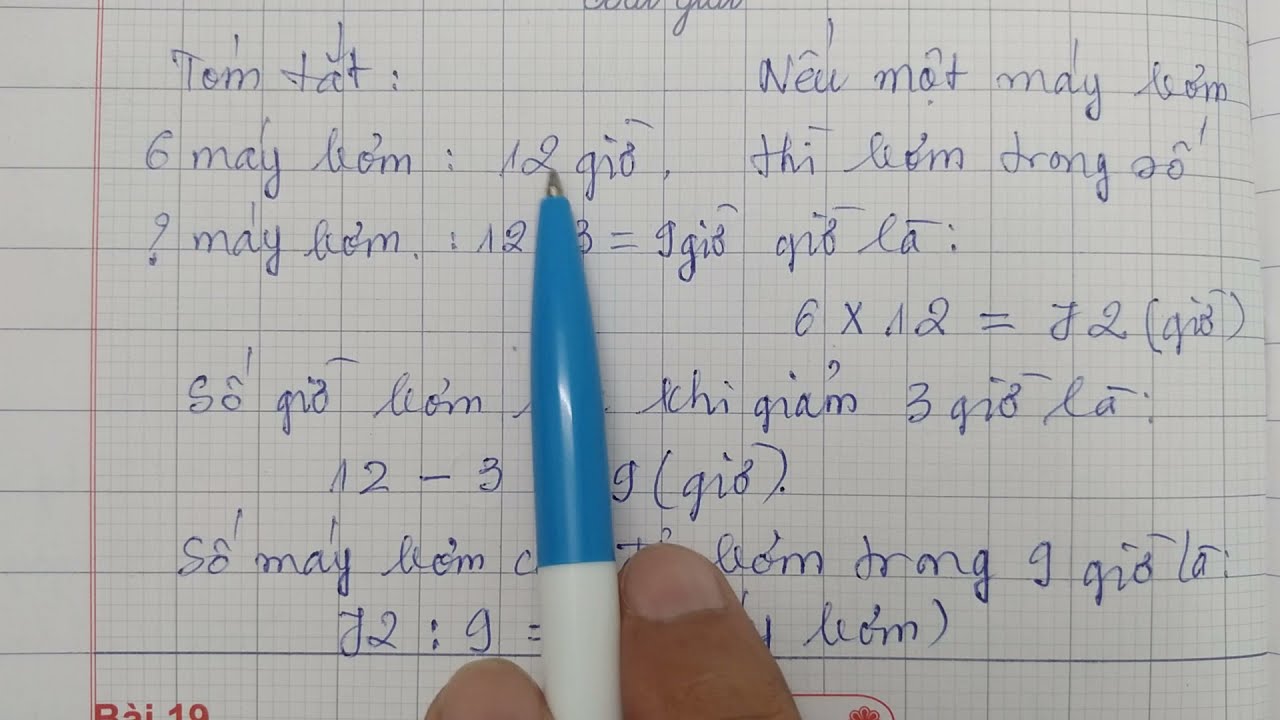 Tóm tắt:
6 máy bơm : 12 giờ.
? máy bơm. : 12 3 = 9giờ
Nếu một máy bơm
thì bơm trong số
giờ là:
6 x 12 = 72 (giờ)
Số giờ bơm khi giảm 3 giờ là:
12 - 3 9 (giờ).
Số máy bơm bơm trong 9 giờ là:
72 : 9 = bơm)
Bài 19